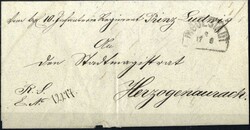 Vom kgl. 10. Infanterie Regiment Prinz Ludwig
An
den Stadtmagistrat
Herzogenaurach
R. S.